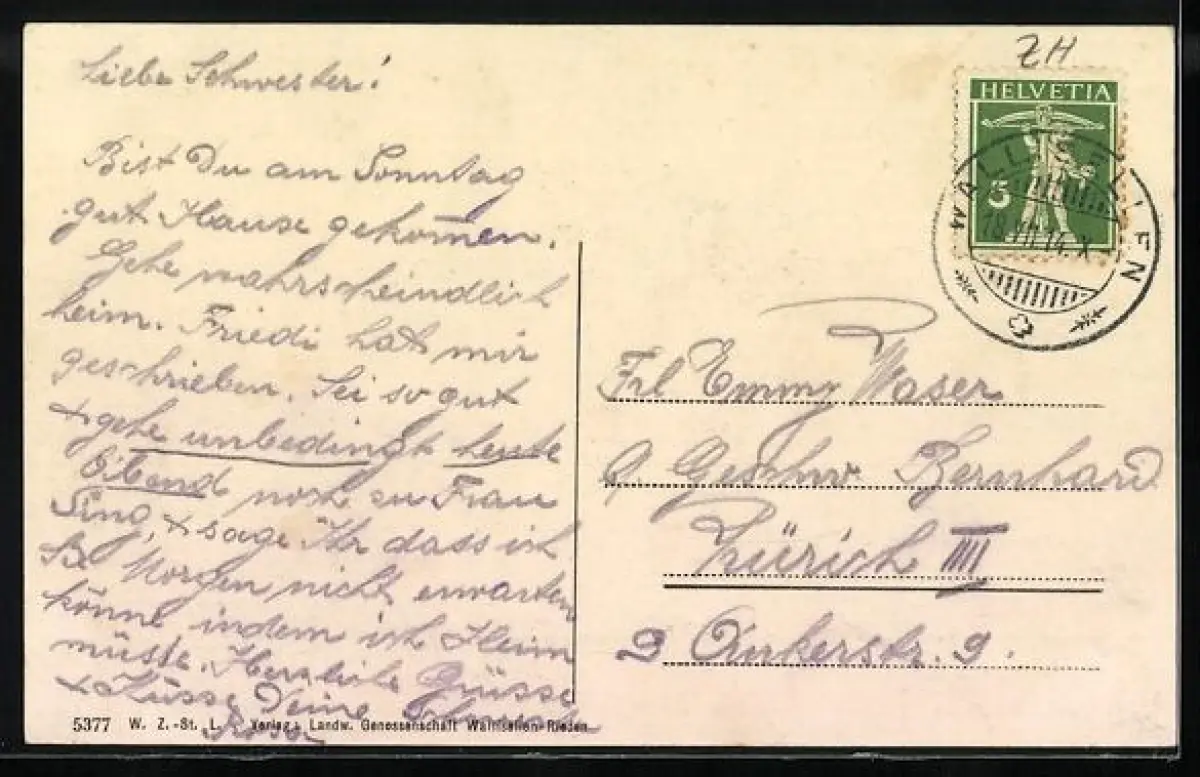 Liebe Schwester!
Bist Du am Sonntag
gut Hause gekom̄en.
Gehe wahrscheindlich
heim. Friedi hat mir
geschrieben. Sei so gut
& gehe unbedingt heute
Abend noch zu Frau
Sing, & sage Ihr dass ich
Sie Morgen nicht erwarten
könne indem ich Heim
müsse. Herzliche Grüsse
& Küsse Deine Schwester
Rosa
5377 W. Z.-St. L. Verlag: Landw. Genossenschaft Wallisellen-Rieden
ZH
HELVETIA
5
WALLISELLEN
18.VII.14.X
Frl Emmy Waser
Geschw. Bernhard
Zürich IIII
9 Ankerstr. 9.